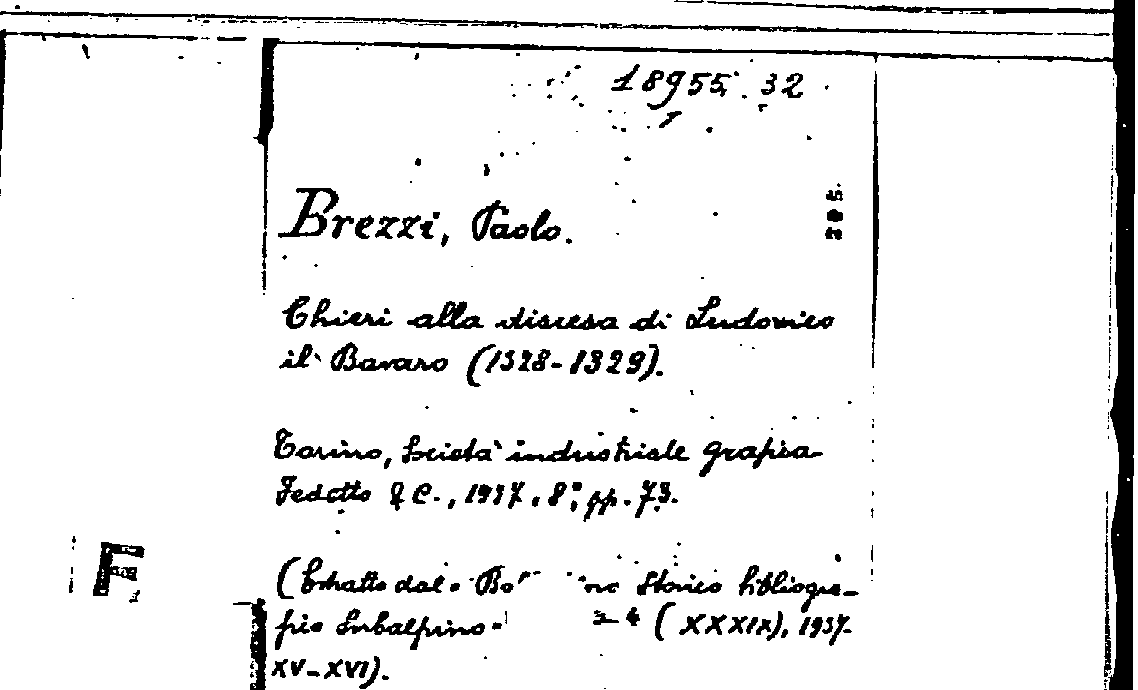 18955. 32
Brezzi, Paolo.
Chieri alla discesa di Ludovico
il Bavaro (1328-1329).
Torino, Società industriale grafica
Fedetto & C., 1937. 8°, pp. 73.
(Estratto dal « Storico bibliogra-
fico Subalpino» (XXXIX), 1937-
XV-XVI).
F